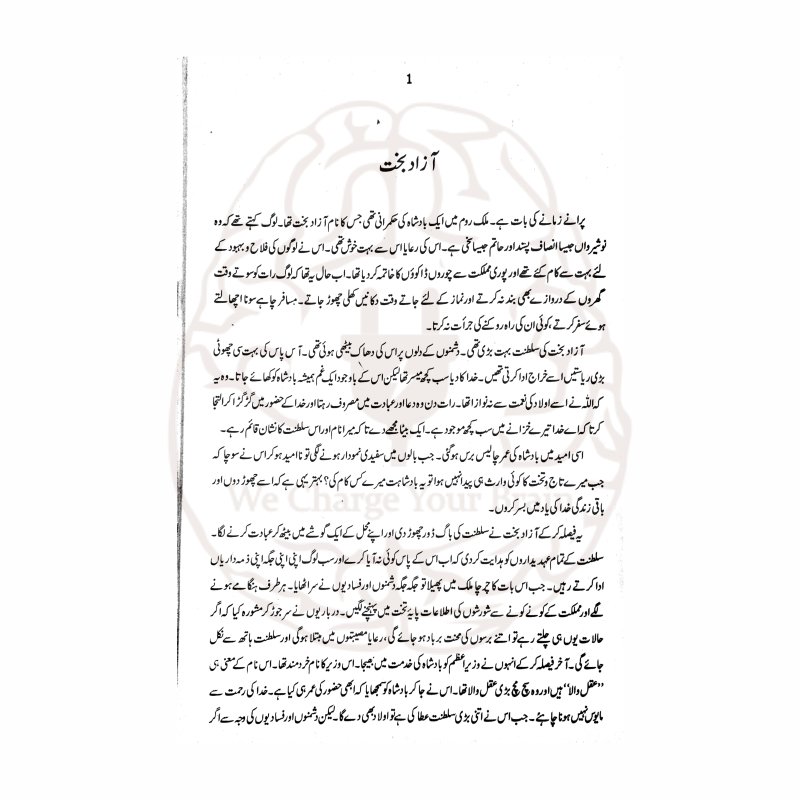 1
آزاد بخت
پرانے زمانے کی بات ہے۔ ملک روم میں ایک بادشاہ کی حکمرانی تھی جس کا نام آزاد بخت تھا۔ لوگ کہتے تھے کہ وہ
نوشیرواں جیسا انصاف پسند اور حاتم جیسا سخی ہے۔ اس کی رعایا اس سے بہت خوش تھی۔ اس نے لوگوں کی فلاح و بہبود کے
لئے بہت سے کام کئے تھے اور پوری مملکت سے چوروں ڈاکوؤں کا خاتمہ کر دیا تھا۔ اب حال یہ تھا کہ لوگ رات کو سوتے وقت
گھروں کے دروازے بھی بند نہ کرتے اور نماز کے لئے جاتے وقت دکانیں کھلی چھوڑ جاتے۔ مسافر چاہے سونا اچھالتے
ہوئے سفر کرتے، کوئی ان کی راہ روکنے کی جرأت نہ کرتا۔
آزاد بخت کی سلطنت بہت بڑی تھی۔ دشمنوں کے دلوں پر اس کی دھاک بیٹھی ہوئی تھی۔ آس پاس کی بہت سی چھوٹی
بڑی ریاستیں اسے خراج ادا کرتی تھیں۔ خدا کا دیا سب کچھ میسر تھا لیکن اس کے باوجود ایک غم ہمیشہ بادشاہ کو کھائے جاتا۔ وہ یہ
کہ اللہ نے اسے اولاد کی نعمت سے نہ نوازا تھا۔ رات دن وہ دعا اور عبادت میں مصروف رہتا اور خدا کے حضور میں گڑگڑا کر التجا
کرتا کہ اے خدا تیرے خزانے میں سب کچھ موجود ہے۔ ایک بیٹا مجھے دے تا کہ میرا نام اور اس سلطنت کا نشان قائم رہے۔
اسی امید میں بادشاہ کی عمر چالیس برس ہو گئی۔ جب بالوں میں سفیدی نمودار ہونے لگی تو نا امید ہو کر اس نے سوچا کہ
جب میرے تاج و تخت کا کوئی وارث ہی پیدا نہیں ہوا تو یہ بادشاہت میرے کس کام کی؟ بہتر یہی ہے کہ اسے چھوڑ دوں اور
باقی زندگی خدا کی یاد میں بسر کروں۔
We Charge Your Brain
یہ فیصلہ کر کے آزاد بخت نے سلطنت کی باگ ڈور چھوڑ دی اور اپنے محل کے ایک گوشے میں بیٹھ کر عبادت کرنے لگا۔
سلطنت کے تمام عہدیداروں کو ہدایت کر دی کہ اب اس کے پاس کوئی نہ آیا کرے اور سب لوگ اپنی اپنی جگہ اپنی ذمہ داریاں
ادا کرتے رہیں۔ جب اس بات کا چرچا ملک میں پھیلا تو جگہ جگہ دشمنوں اور فسادیوں نے سر اٹھایا۔ ہر طرف ہنگامے ہونے
لگے اور مملکت کے کونے کونے سے شورشوں کی اطلاعات پایۂ تخت میں پہنچنے لگیں۔ درباریوں نے سر جوڑ کر مشورہ کیا کہ اگر
حالات یوں ہی چلتے رہے تو اتنے برسوں کی محنت برباد ہو جائے گی، رعایا مصیبتوں میں مبتلا ہو گی اور سلطنت ہاتھ سے نکل
جائے گی۔ آخر فیصلہ کر کے انہوں نے وزیر اعظم کو بادشاہ کی خدمت میں بھیجا۔ اس وزیر کا نام خردمند تھا۔ اس نام کے معنی ہی
”عقل والا“ ہیں اور وہ سچ مچ بڑی عقل والا تھا۔ اس نے جا کر بادشاہ کو سمجھایا کہ ابھی حضور کی عمر ہی کیا ہے۔ خدا کی رحمت سے
مایوس نہیں ہونا چاہئے۔ جب اس نے اتنی بڑی سلطنت عطا کی ہے تو اولاد بھی دے گا۔ لیکن دشمنوں اور فسادیوں کی وجہ سے اگر